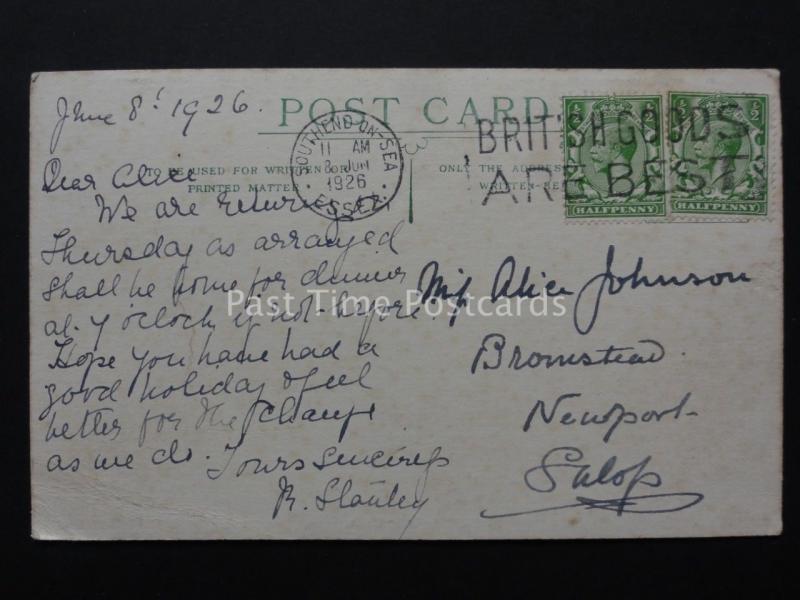 June 8th 1926.
POST CARD
SOUTHEND-ON-SEA
11 AM
8 JUN
1926
ESSEX
BRITISH GOODS
ARE BEST
½ ½
½ ½
HALFPENNY HALFPENNY
3
TO BE USED FOR WRITTEN OR
PRINTED MATTER
ONLY THE ADDRESS
WRITTEN
Dear Alice
We are returning
Thursday as arranged
Shall be home for dinner
at 7 o'clock, if not before.
Hope you have had a
good holiday & feel
better for the change
as we do. Yours sincerely
R. Stanley
Miss Alice Johnson
Bromstead
Newport
Salop
Past Time Postcards